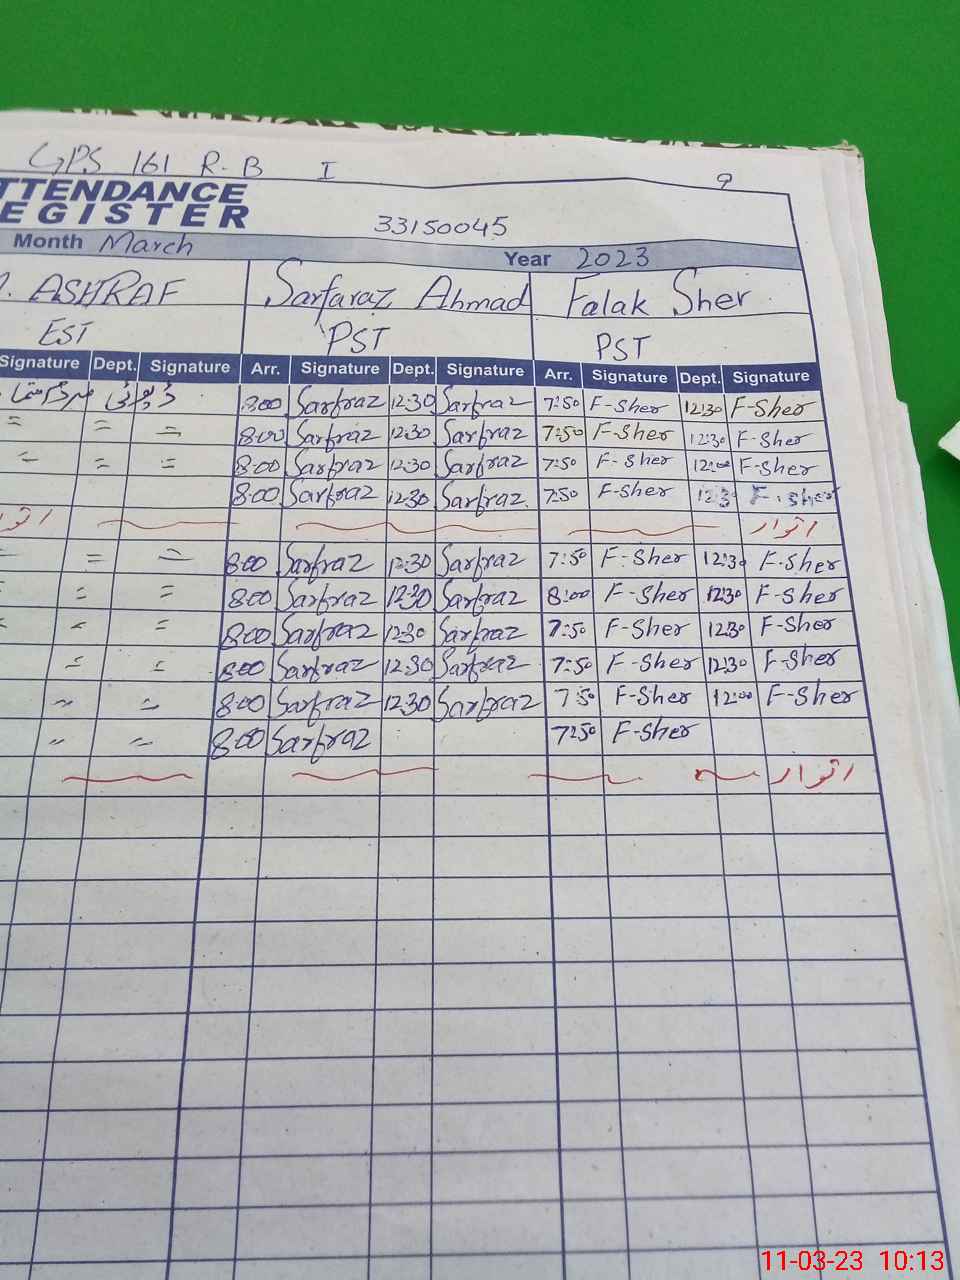 GPS 161 R-B I 9
TTENDANCE
EGISTER
33150045
Month March Year 2023
ASHRAF Sarfaraz Ahmad Falak Sher
EST PST PST
Signature Dept. Signature Arr. Signature Dept. Signature Arr. Signature Dept. Signature
ڈیوٹی 8:00 Sarfraz 12:30 Sarfraz 7:50 F-Sher 12:30 F-Sher
= = = 8:00 Sarfraz 12:30 Sarfraz 7:50 F-Sher 12:30 F-Sher
= = = 8:00 Sarfraz 12:30 Sarfraz 7:50 F-Sher 12:00 F-Sher
8:00 Sarfraz 12:30 Sarfraz 7:50 F-Sher 12:30 F-Sher
اتوار
= = = 8:00 Sarfraz 12:30 Sarfraz 7:50 F-Sher 12:30 F-Sher
= = = 8:00 Sarfraz 12:30 Sarfraz 8:00 F-Sher 12:30 F-Sher
" = = 8:00 Sarfraz 12:30 Sarfraz 7:50 F-Sher 12:30 F-Sher
= = 8:00 Sarfraz 12:30 Sarfraz 7:50 F-Sher 12:30 F-Sher
" " 8:00 Sarfraz 12:30 Sarfraz 7:50 F-Sher 12:00 F-Sher
" " 8:00 Sarfraz 7:50 F-Sher
اتوار
11-03-23 10:13